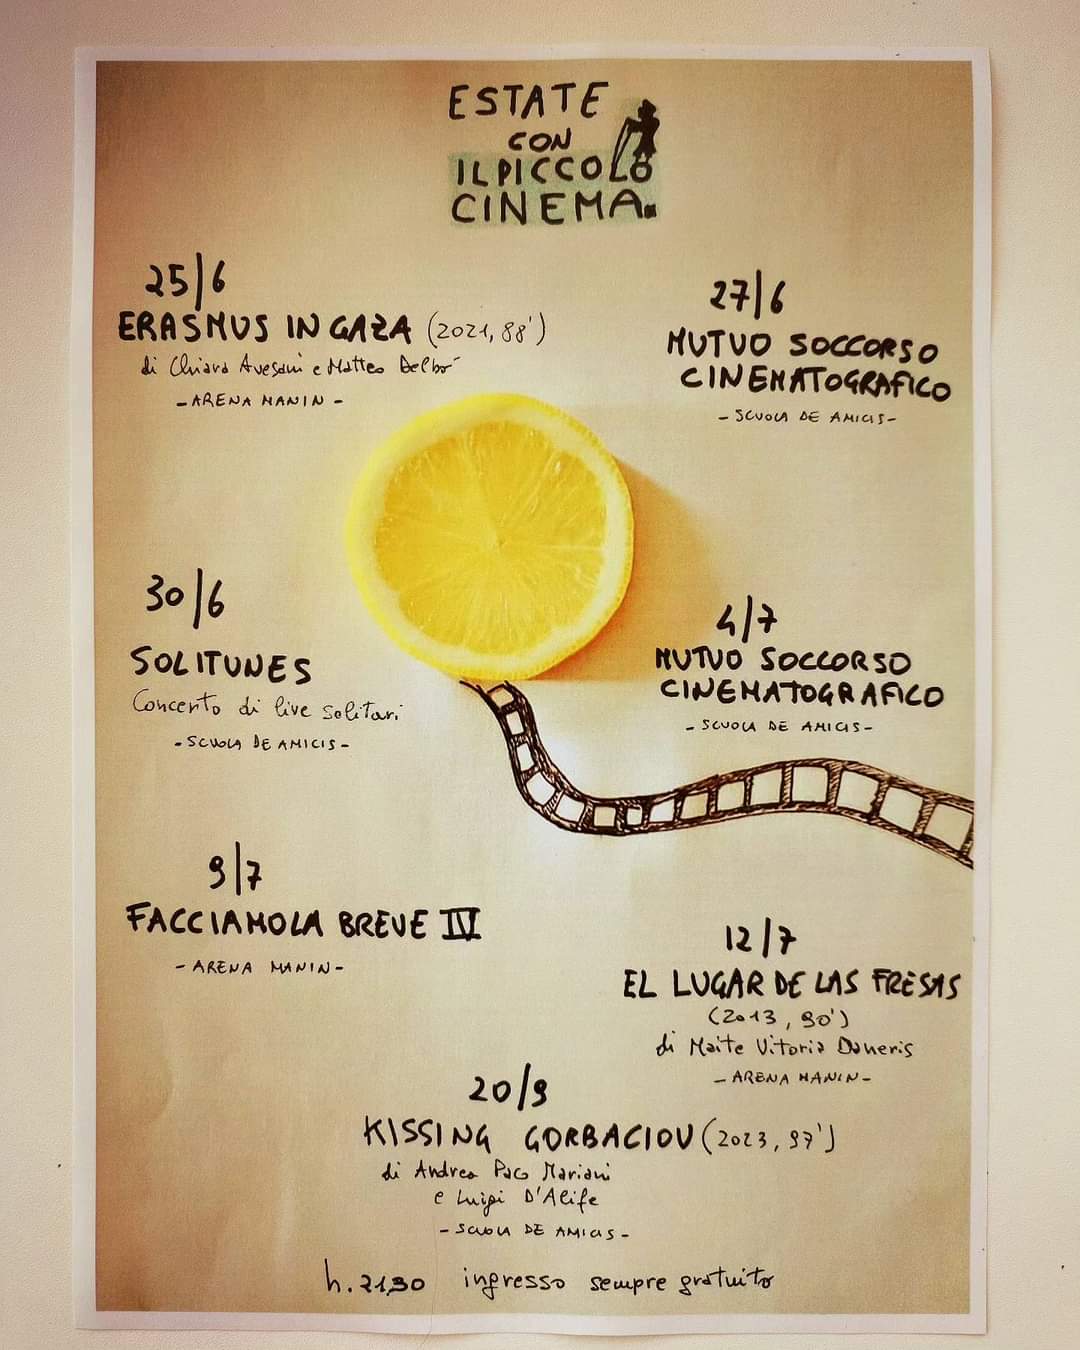 ESTATE
CON
IL PICCOLO
CINEMA
25/6
ERASMUS IN GAZA (2021, 88')
di Chiara Avesani e Matteo Delbò
- ARENA MANIN -
27/6
MUTUO SOCCORSO
CINEMATOGRAFICO
- SCUOLA DE AMICIS -
30/6
SOLITUNES
Concerto di live solitari
- SCUOLA DE AMICIS -
4/7
MUTUO SOCCORSO
CINEMATOGRAFICO
- SCUOLA DE AMICIS -
9/7
FACCIAMOLA BREVE IV
- ARENA MANIN -
12/7
EL LUGAR DE LAS FRESAS
(2013, 90')
di Maite Vitoria Daneris
- ARENA MANIN -
20/9
KISSING GORBACIOV (2023, 97')
di Andrea Paco Mariani
e Luigi D'Alife
- SCUOLA DE AMICIS -
h. 21,30 ingresso sempre gratuito